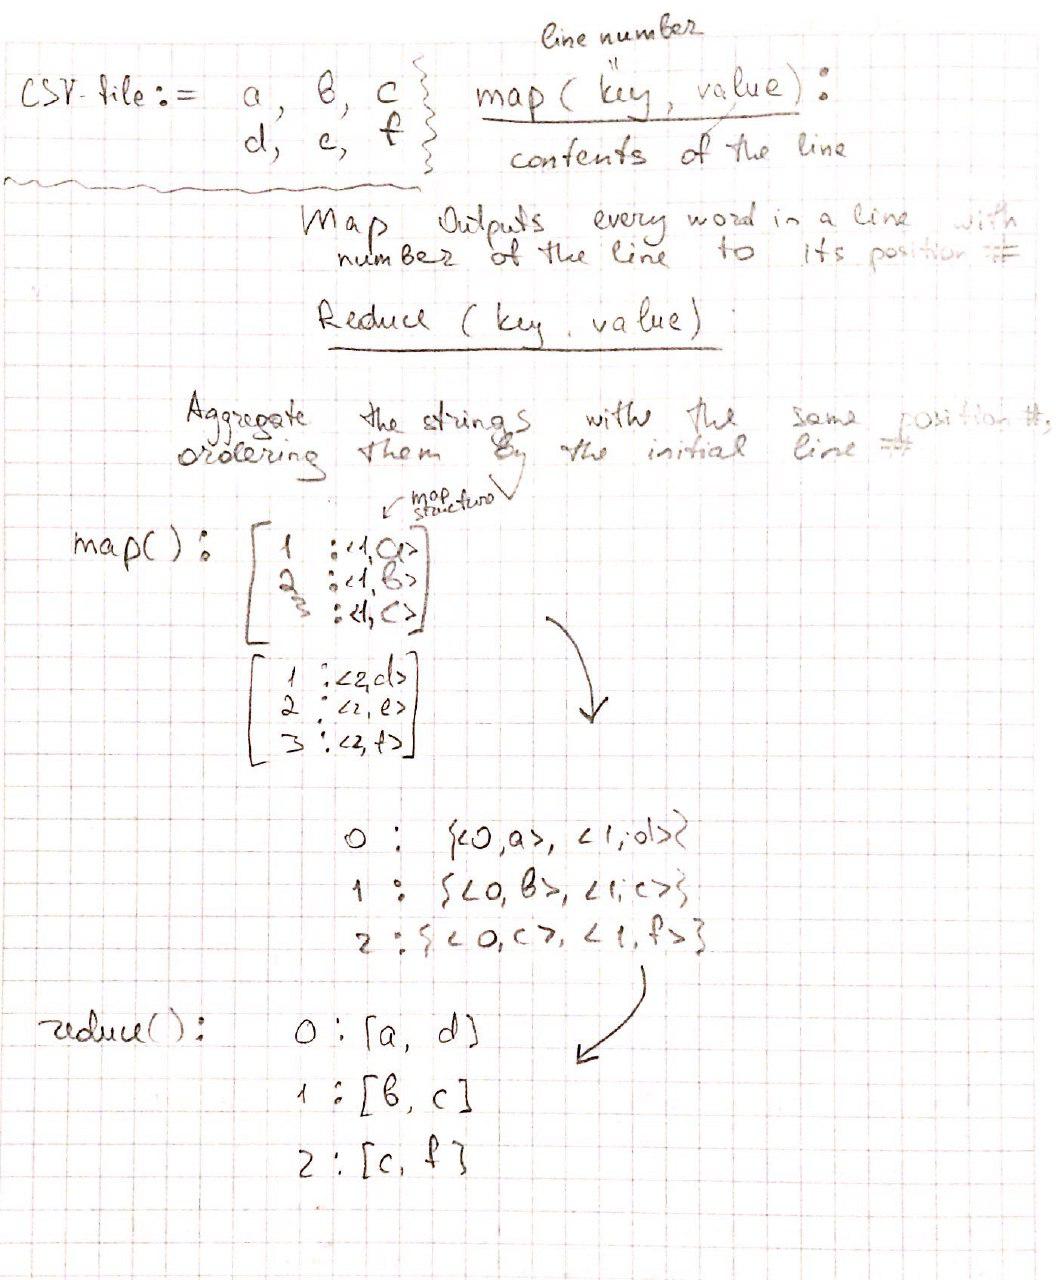 line number
"
CSV-file := a, b, c } map( key, value) :
d, e, f
contents of the line
Map Outputs every word in a line with
number of the line to its position #
Reduce ( key, value) :
Aggregate the strings with the same position #,
ordering them by the initial line #
map structure
map() : [ 1 : <1,a>
2 : <1,b>
3 : <1,c> ]
[ 1 : <2,d>
2 : <2,e>
3 : <2,f> ]
0 : {<0,a>, <1,d>}
1 : {<0,b>, <1,e>}
2 : {<0,c>, <1,f>}
reduce() : 0 : [a, d]
1 : [b, e]
2 : [c, f]